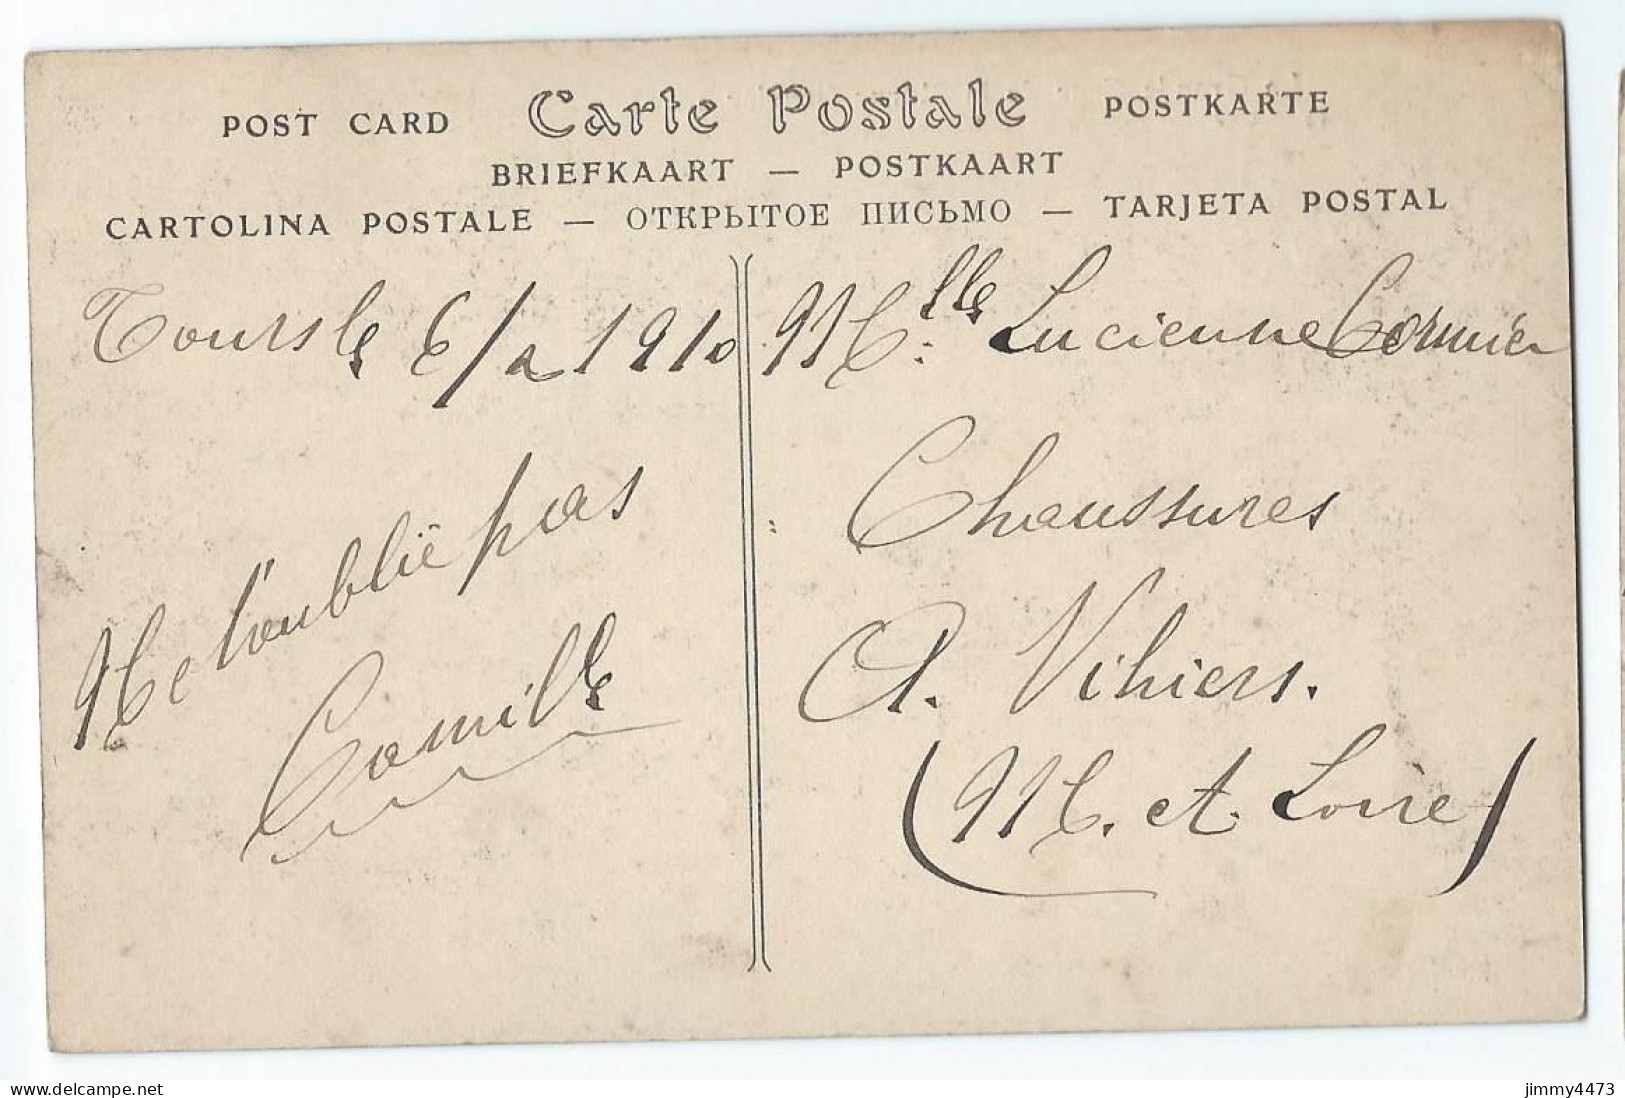 POST CARD Carte Postale POSTKARTE
BRIEFKAART — POSTKAART
CARTOLINA POSTALE — ОТКРЫТОЕ ПИСЬМО — TARJETA POSTAL
Tours le 6/2 1910
Ne t'oublie pas
Camille
Mlle Lucienne Cormier
Chaussures
A. Vihiers.
(M. et. Loire)
www.delcampe.net
jimmy4473